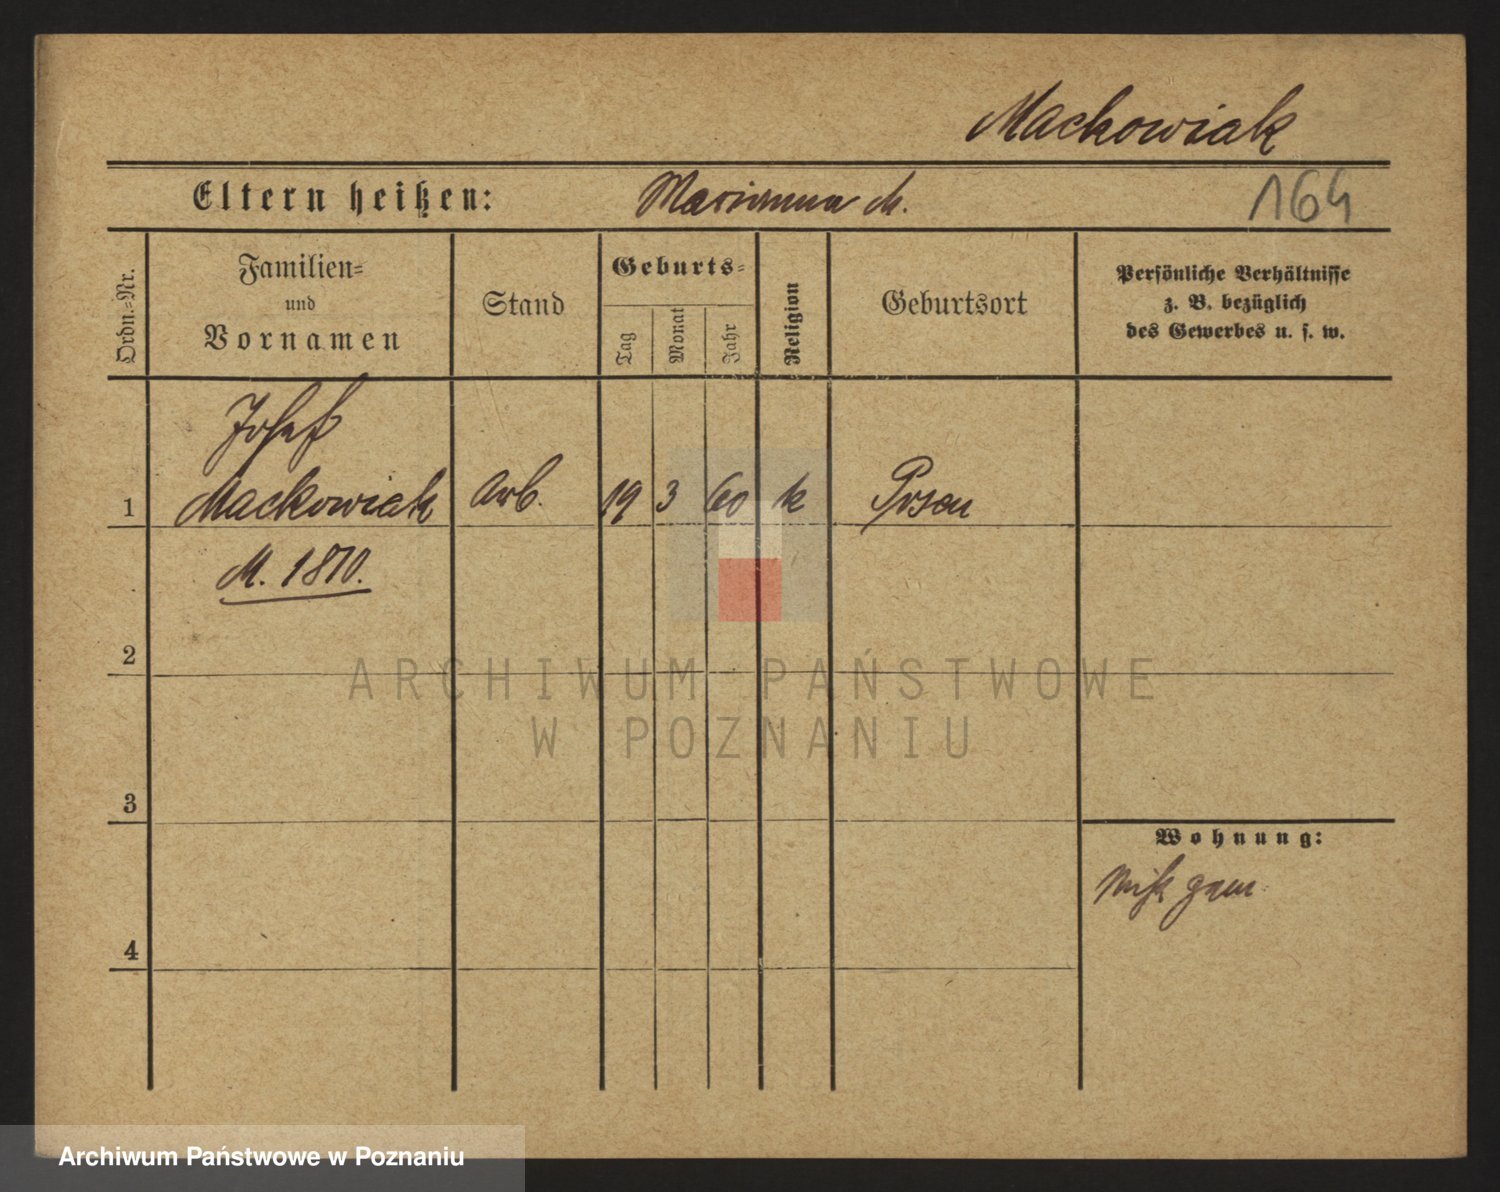 Mackowiak
Eltern heißen: Marianna M.
164
Ordn.=Nr.
Familien=
und
Vornamen
Stand
Geburts=
Tag
Monat
Jahr
Religion
Geburtsort
Persönliche Verhältnisse
z. B. bezüglich
des Gewerbes u. s. w.
Josef
1 Mackowiak Arb. 19 3 60 k Posen
M. 1870.
2
ARCHIWUM PAŃSTWOWE
W POZNANIU
3
Wohnung:
4
Archiwum Państwowe w Poznaniu